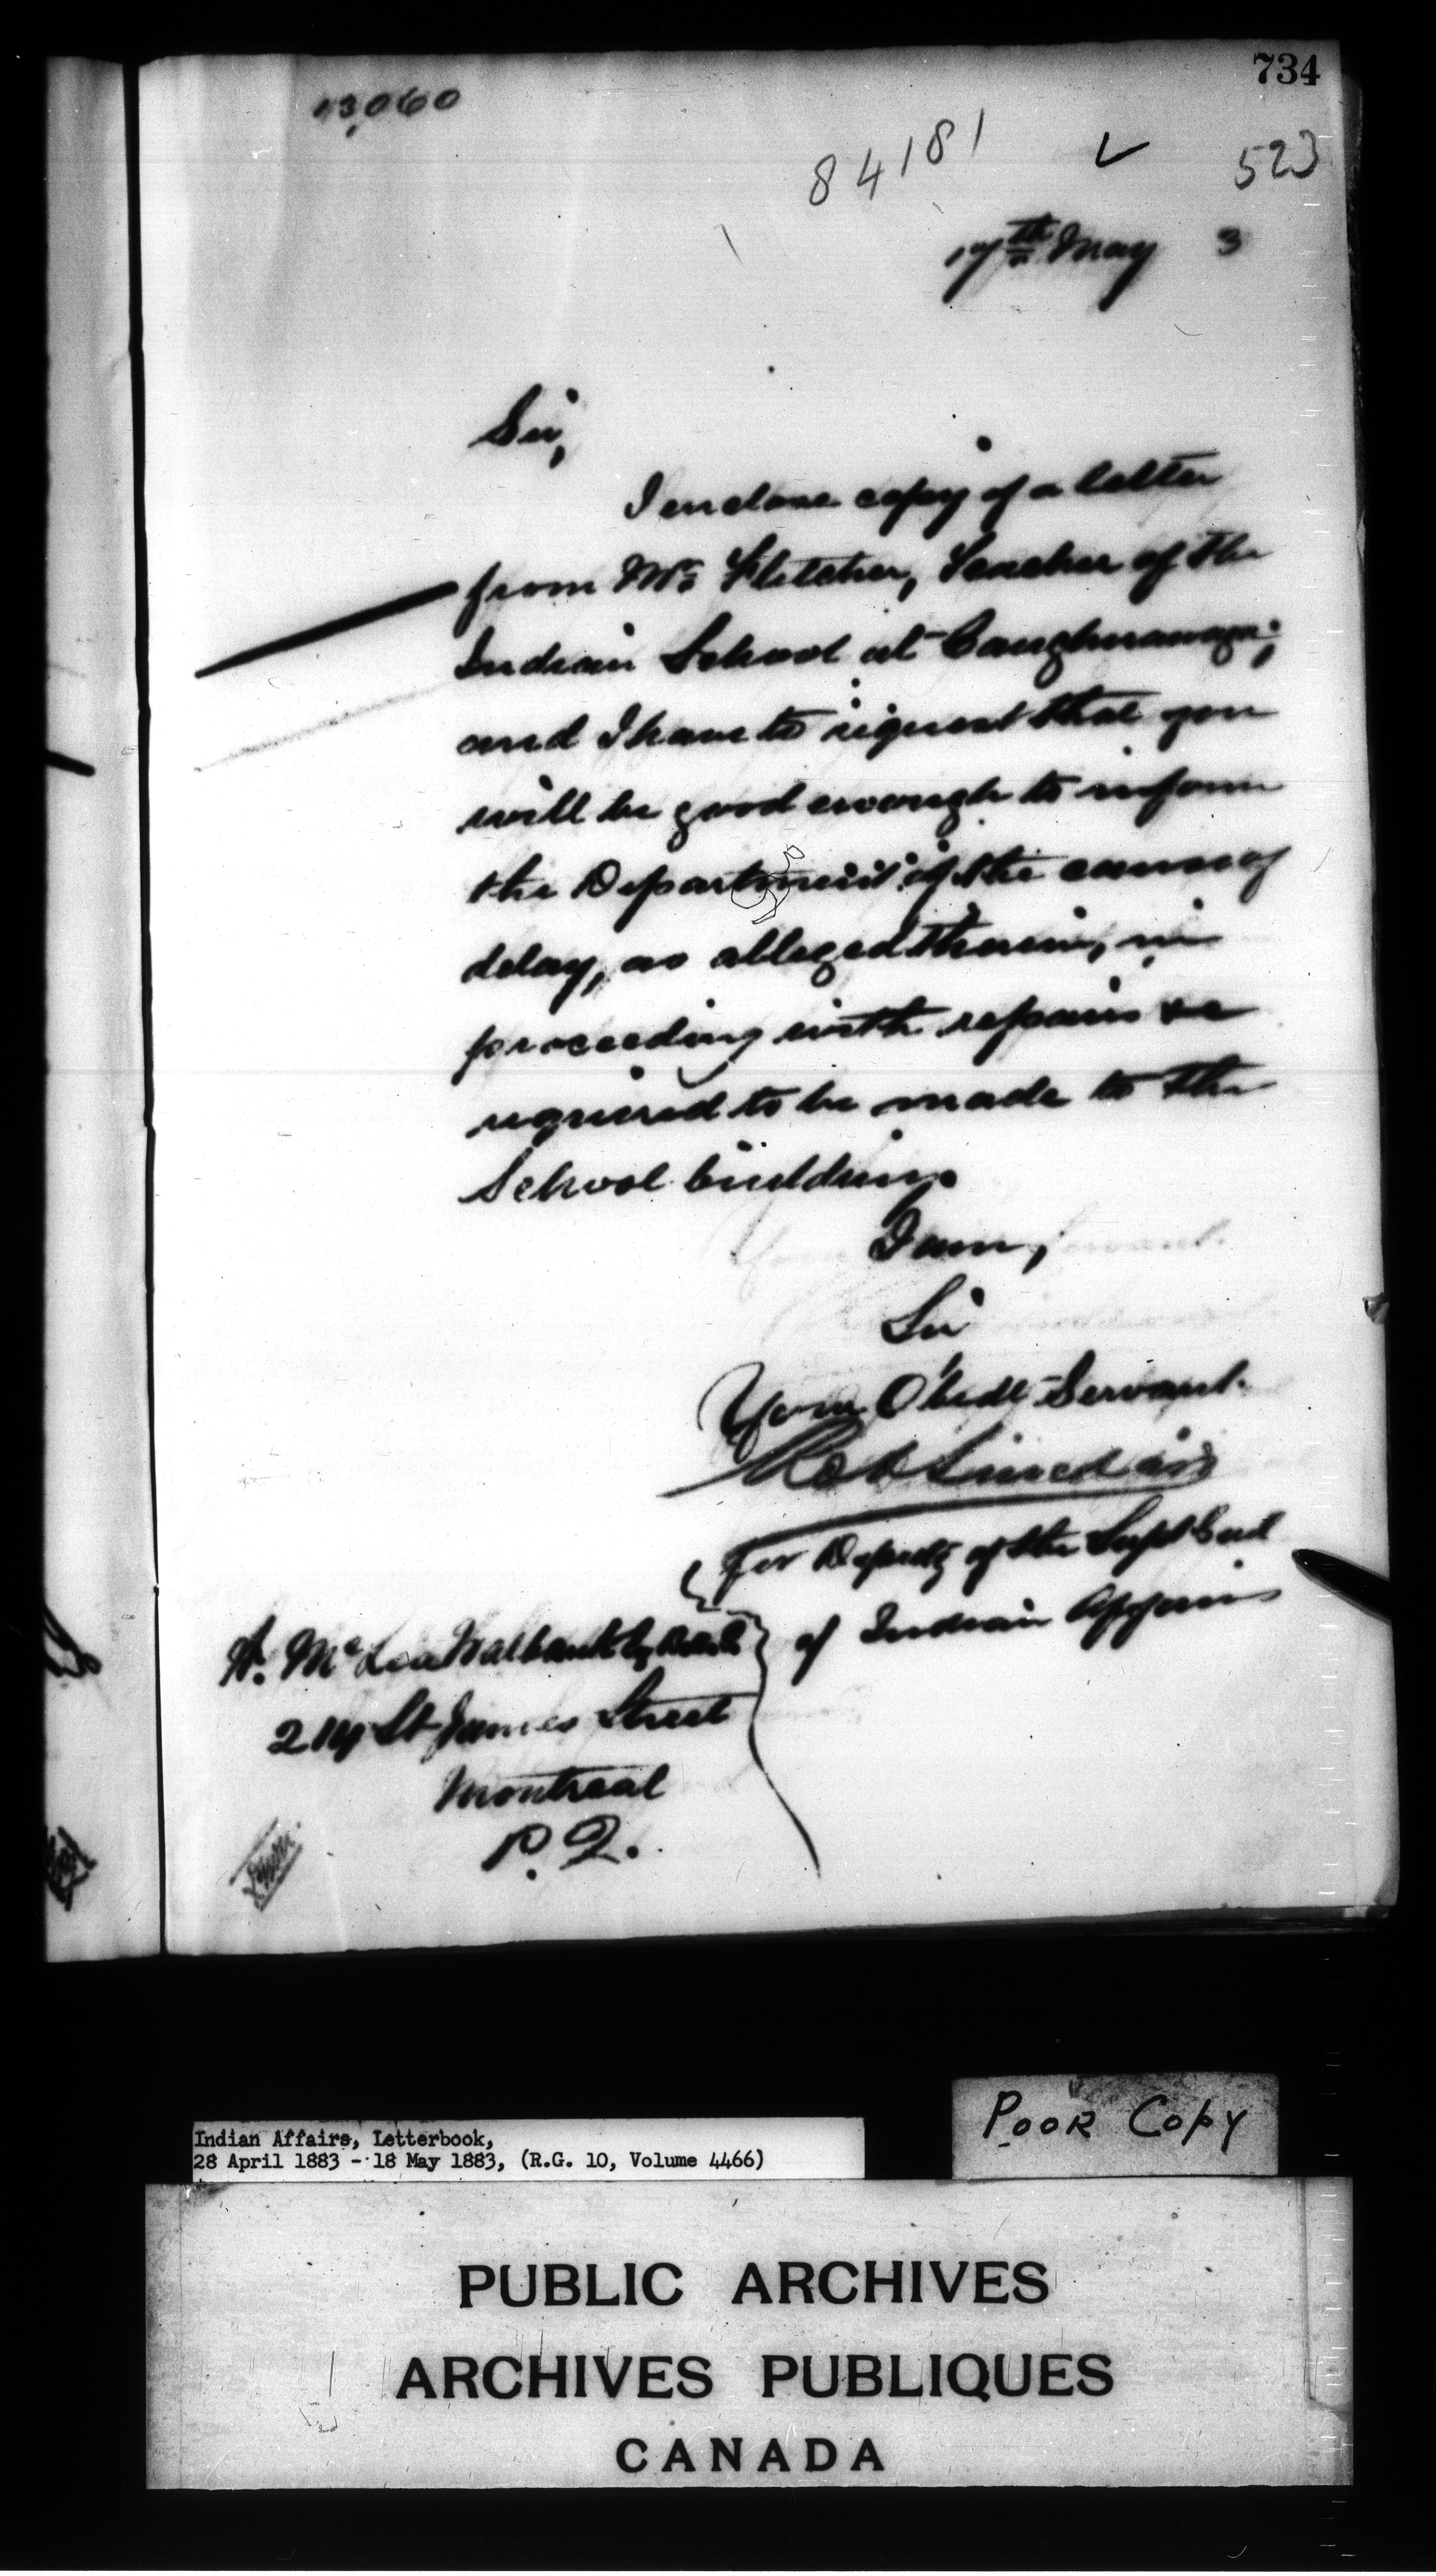 734
13,060
84181
523
17th May 3
Sir,
I enclose copy of a letter
from Mr. Fletcher, Teacher of the
Indian School at Caughnawaga;
and I have to request that you
will be good enough to inform
the Department of the cause of
delay, as alleged therein, in
proceeding with repairs &c
required to be made to the
School building.
I am,
Sir
Your Obedt Servant.
Robt Sinclair
For Deputy of the Supt Genl
of Indian Affairs
W. McLea Walbank Esq
214 St James Street
Montreal
P. Q.
Indian Affairs, Letterbook,
28 April 1883 - 18 May 1883, (R.G. 10, Volume 4466)
POOR COPY
PUBLIC ARCHIVES
ARCHIVES PUBLIQUES
CANADA